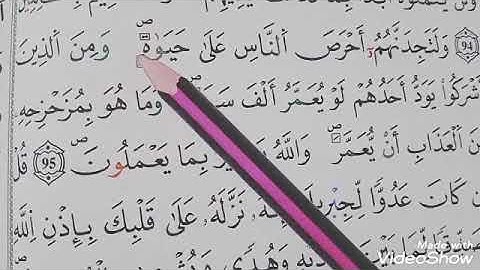 94 وَلَتَجِدَنَّهُمُۥٓ أَحْرَصَ اَلنَّاسِ عَلَىٰ حَيَوٰةٍ وَمِنَ اَلذِينَ
أَشْرَكُواْ يَوَدُّ أَحَدُهُمْ لَوْ يُعَمَّرُ أَلْفَ وَمَا هُوَ بِمُزَحْزِحِهِۦ
مِنَ اَلْعَذَابِ أَنْ يُّعَمَّرَ وَاللَّهُ بِمَا يَعْمَلُونَ 95 قُلْ
مَن كَانَ عَدُوّاً لِّجِبْرِيلَ نَزَّلَهُۥ عَلَىٰ قَلْبِكَ بِإِذْنِ اِللَّهِ
يَدَيْهِ وَهُدىً
Made with
VideoShow